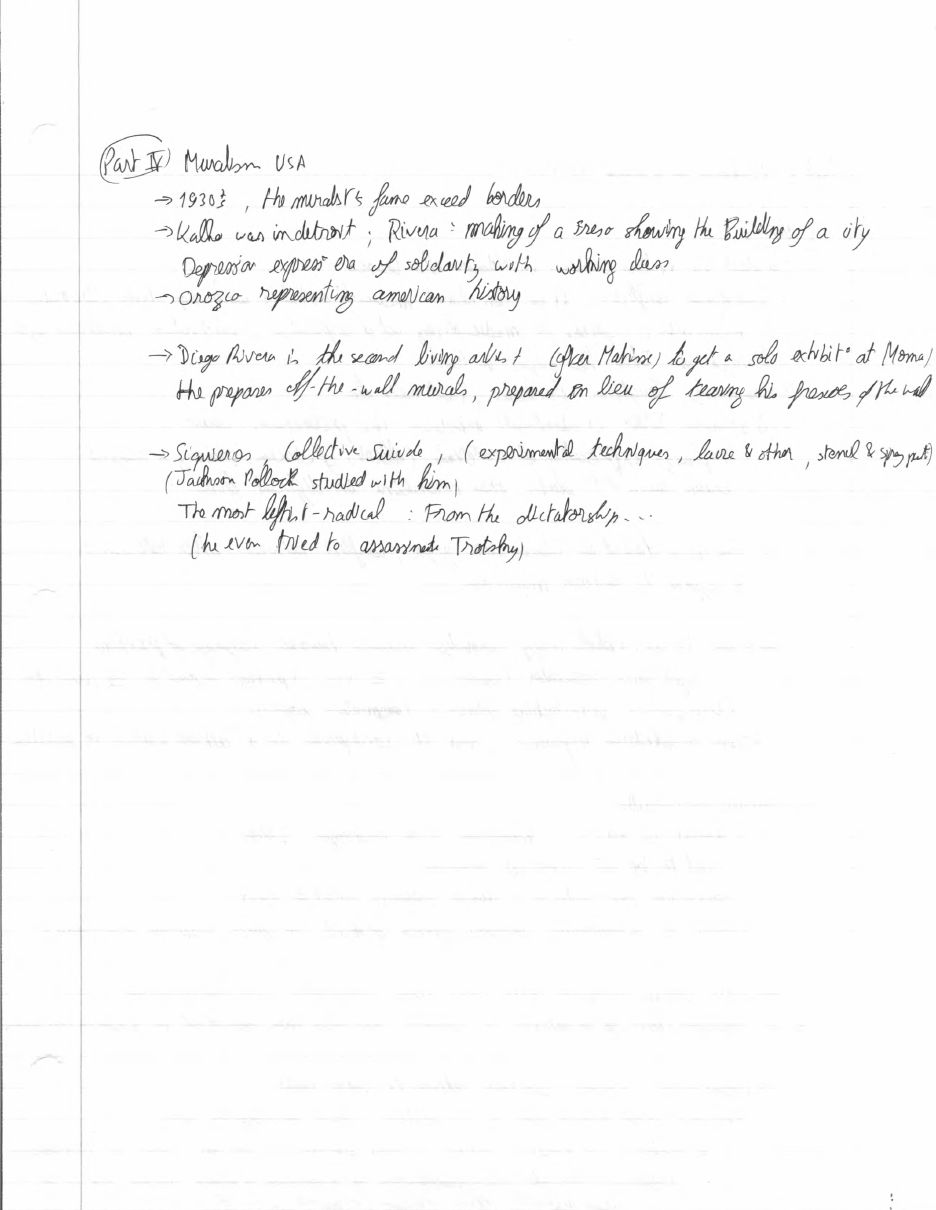 Part IV Muralism USA
→ 1930s, the muralist's fame exceed borders
→ Kalho was in detroit ; Rivera : making of a fresco showing the Building of a city
Depression express era of solidarity with working class
→ Orozco representing american history
→ Diego Rivera is the second living artist (after Matisse) to get a solo exhibit° at Moma)
He prepares off-the-wall murals, prepared in lieu of tearing his frescoes of the wall
→ Siqueiros, Collective Suicide, (experimental techniques, & other, stencil & spray paint)
(Jackson Pollock studied with him)
The most leftist-radical : From the dictatorship...
(he even tried to assassinate Trotsky)